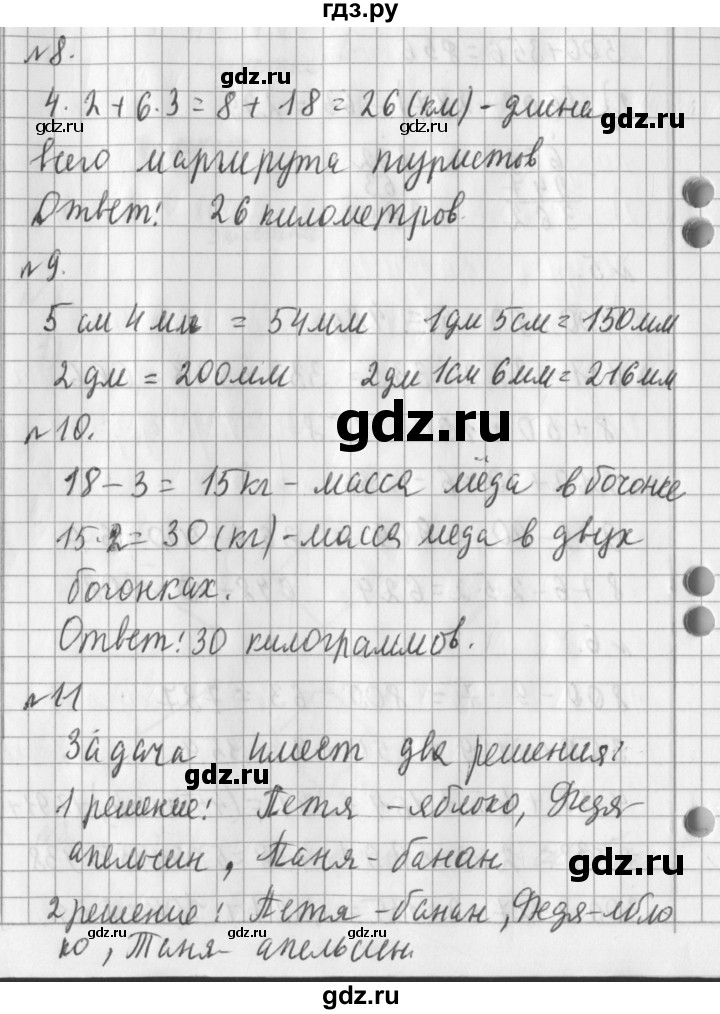 гдз.ру
№8.
gdz.ru
4·2+6·3=8+18=26(км)-длина
gdz.ru gdz.ru
всего маршрута туристов
gdz.ru
Ответ: 26 километров.
№9.
5 см 4 мм = 54 мм 1дм 5см = 150мм
gdz.ru gdz.ru
2 дм = 200мм 2дм 1см 6мм = 216мм
gdz.ru
№10.
18-3=15кг-масса мёда в бочонке
gdz.ru
15·2=30(кг)-масса меда в двух
gdz.ru
бочонках.
gdz.ru
Ответ: 30 килограммов.
№11
Задача имеет два решения:
gdz.ru
1 решение: Петя -яблоко, Федя
апельсин, Таня-банан
gdz.ru
2 решение: Петя -банан, Федя-ябло
ко, Таня- апельсин.
gdz.ru gdz.ru
gdz.ru